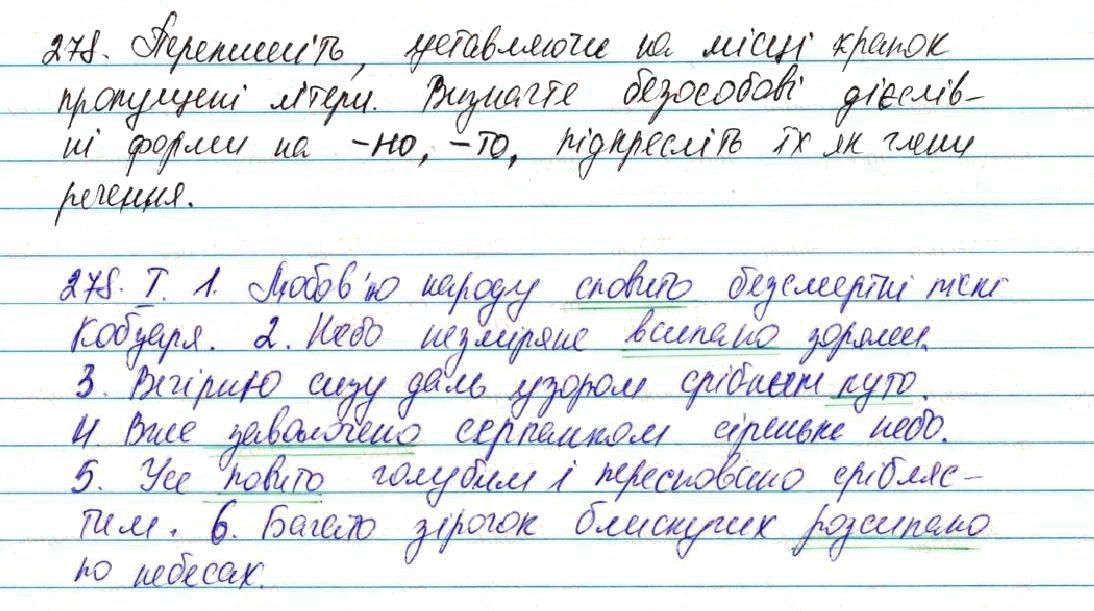 278. Перепишіть, уставляючи на місці крапок
пропущені літери. Визначте безособові дієслів-
ні форми на -но, -то, підкресліть їх як члени
речення.
278. I. 1. Любов'ю народу сповито безсмертні пісні
Кобзаря. 2. Небо незміряне всипано зорями.
3. Вечірню сизу даль узором срібним куто.
4. Вже заволочено серпанком сіреньке небо.
5. Усе повито голубим і пересновано срібляс-
тим. 6. Багато зірочок блискучих розсипано
по небесах.